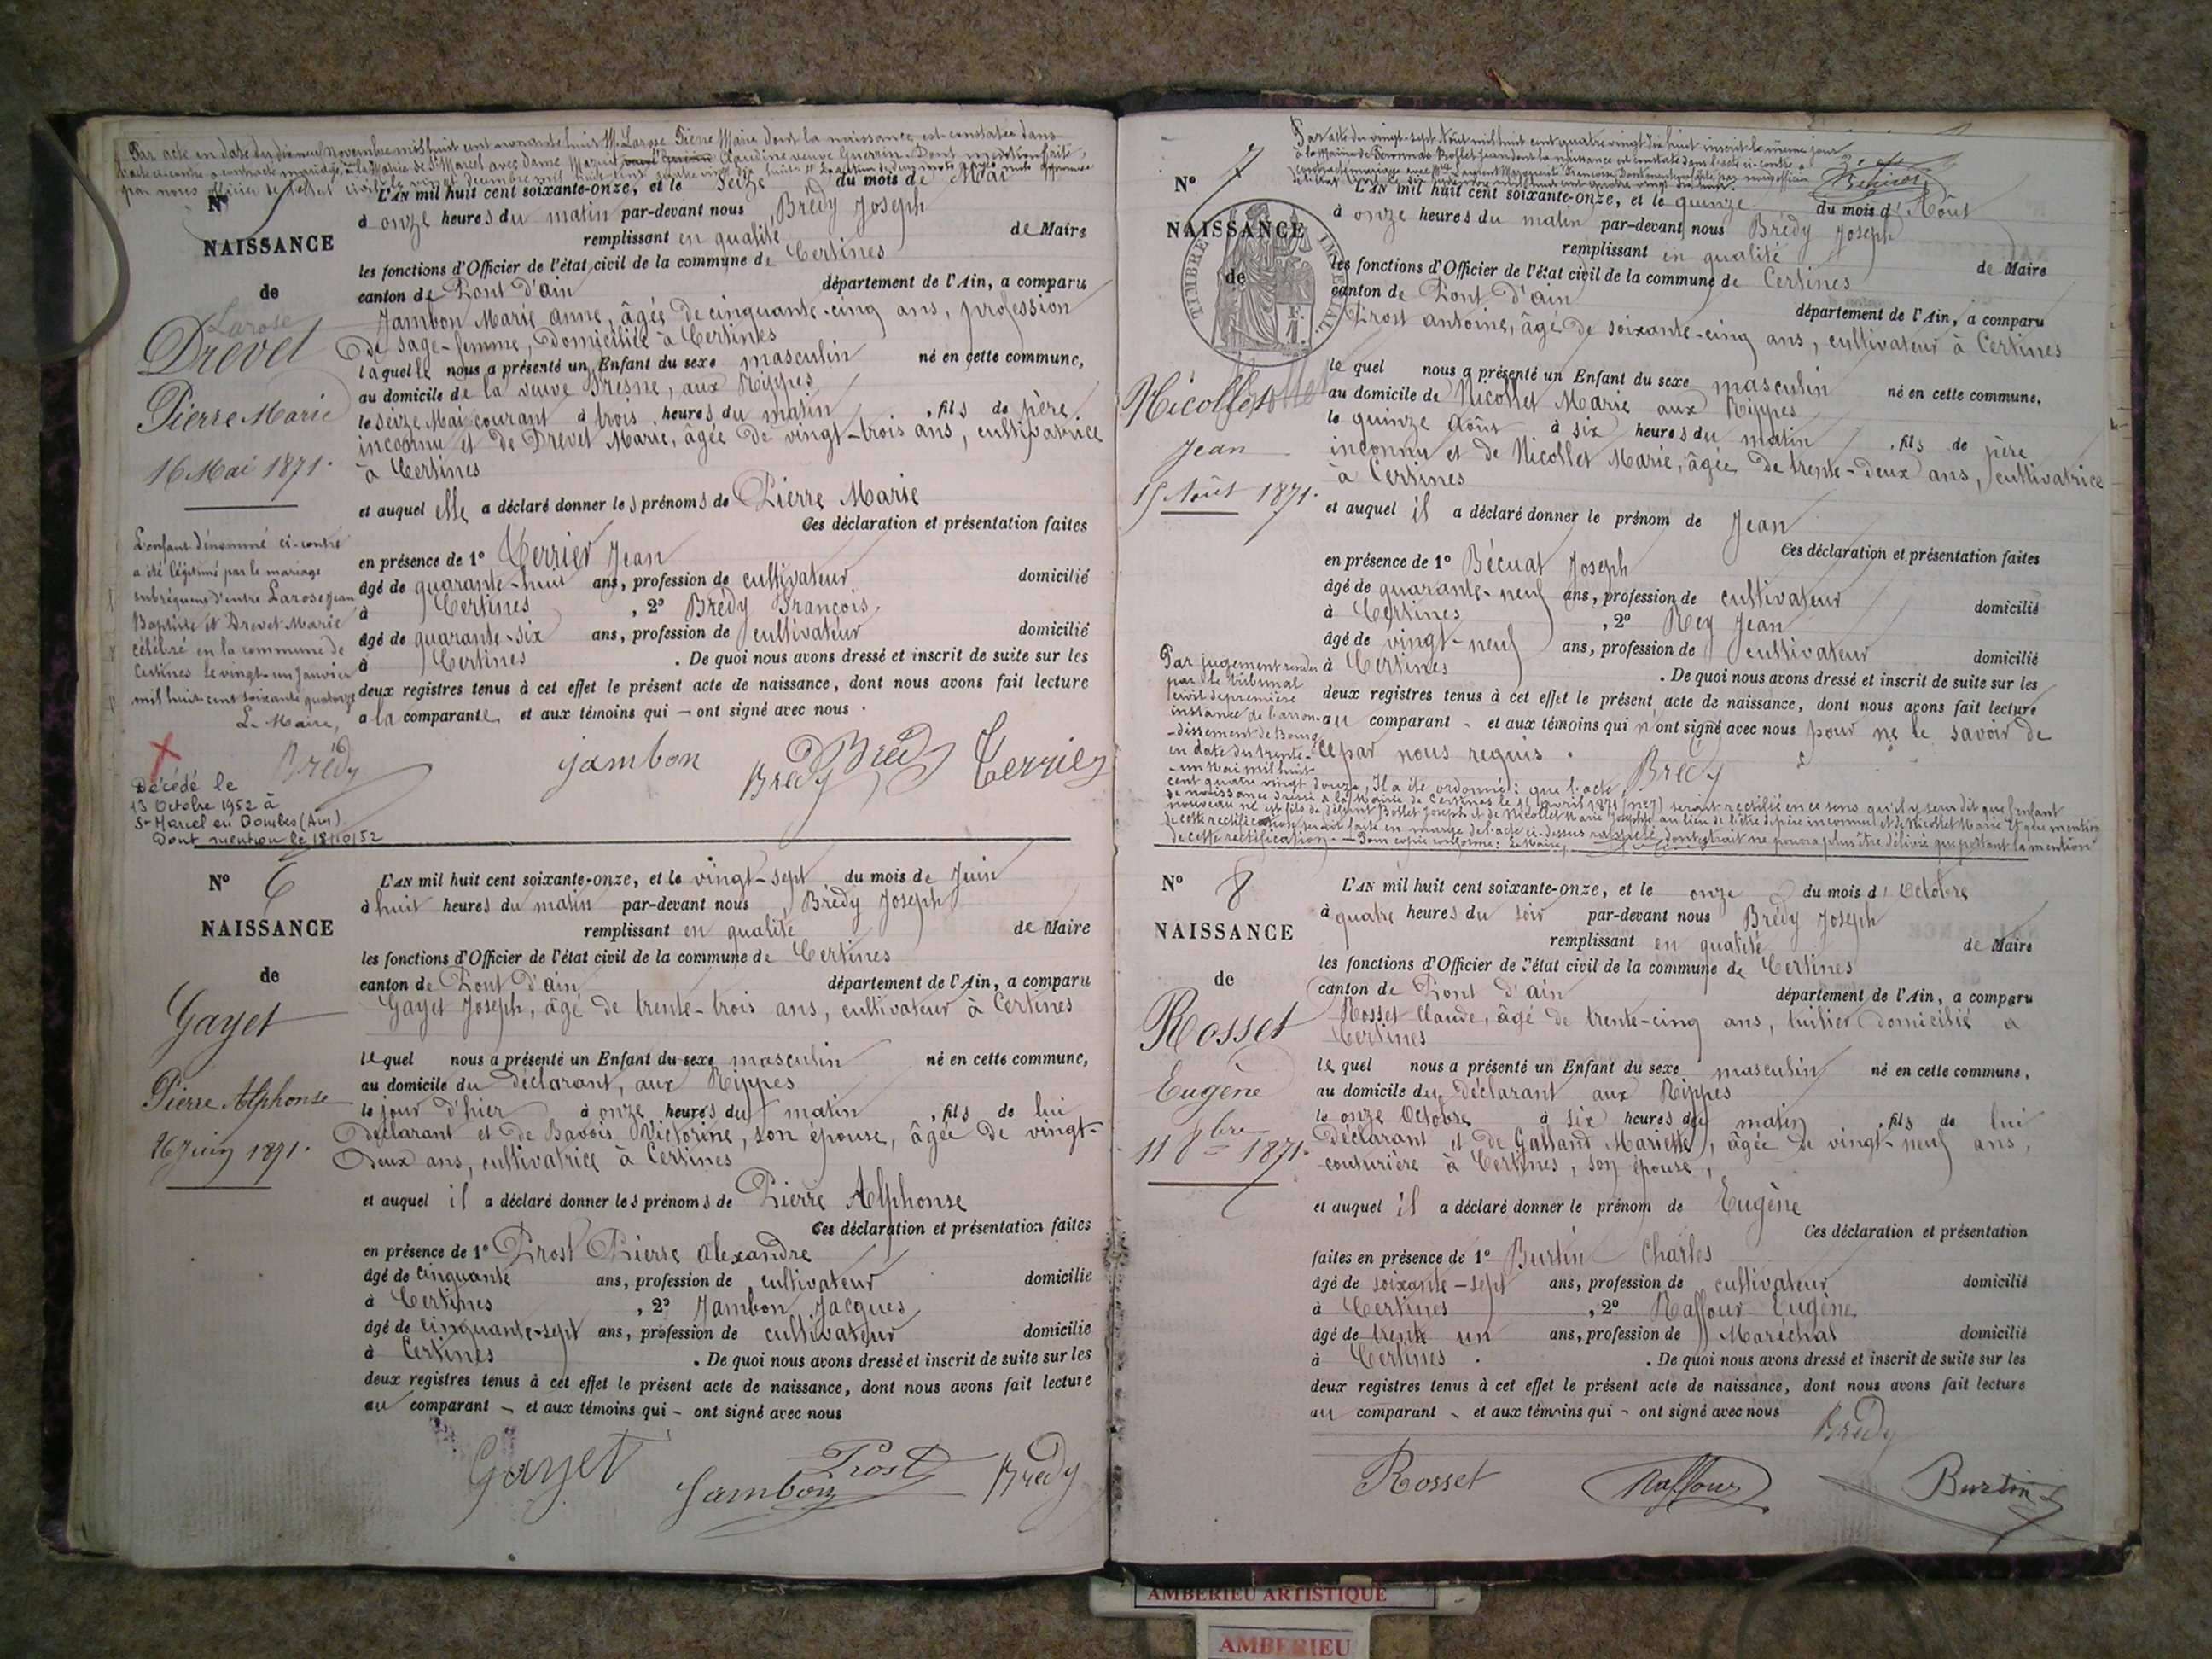 Par acte en date du dix neuf Novembre mil huit cent M. Larose Pierre Marie dont la naissance est constatée dans
l'acte ci-contre a contracté mariage à la Mairie de St Marcel avec dame Claudine veuve Guerrin. Dont mention faite,
par nous officier de l'état civil le vingt decembre mil huit cent
N° 5
L'AN mil huit cent soixante-onze, et le seize du mois de Mai
à onze heures du matin par-devant nous Brédy Joseph
NAISSANCE
remplissant en qualité de Maire
les fonctions d'Officier de l'état civil de la commune de Certines
de
canton de Pont d'ain département de l'Ain, a comparu
Larose
Jambon Marie anne, âgée de cinquante-cinq ans, profession
Drevet
de sage-femme, domiciliée à Certines
laquelle nous a présenté un Enfant du sexe masculin né en cette commune,
au domicile de la veuve Fresne, aux Rippes
Pierre Marie
le seize Mai courant à trois heures du matin, fils de père
inconnu et de Drevet Marie, âgée de vingt-trois ans, cultivatrice
16 Mai 1871.
à Certines
et auquel elle a déclaré donner les prénoms de Pierre Marie
Ces déclaration et présentation faites
L'enfant dénommé ci-contre
a été légitimé par le mariage
subséquent d'entre Larose Jean
Baptiste et Drevet Marie
célébré en la commune de
Certines le vingt-un Janvier
mil huit cent soixante quatorze
Le Maire,
Brédy
en présence de 1° Terrier Jean
âgé de quarante-huit ans, profession de cultivateur domicilié
à Certines, 2° Brédy François
âgé de quarante-six ans, profession de cultivateur domicilié
à Certines. De quoi nous avons dressé et inscrit de suite sur les
deux registres tenus à cet effet le présent acte de naissance, dont nous avons fait lecture
à la comparante, et aux témoins qui — ont signé avec nous.
jambon Brédy Brédy Terrier
Décédé le
13 Octobre 1952 à
St Marcel en Dombes (Ain)
Dont mention le 18/10/52
N° 6
L'AN mil huit cent soixante-onze, et le vingt-sept du mois de Juin
à huit heures du matin par-devant nous Brédy Joseph
NAISSANCE
remplissant en qualité de Maire
les fonctions d'Officier de l'état civil de la commune de Certines
de
canton de Pont d'ain département de l'Ain, a comparu
Gayet
Gayet Joseph, âgé de trente-trois ans, cultivateur à Certines
lequel nous a présenté un Enfant du sexe masculin né en cette commune,
au domicile du déclarant, aux Rippes
Pierre Alphonse
le jour d'hier à onze heures du matin, fils de lui
déclarant et de Bavois Victorine, son épouse, âgée de vingt-
26 Juin 1871.
deux ans, cultivatrice à Certines
et auquel il a déclaré donner les prénoms de Pierre Alphonse
Ces déclaration et présentation faites
en présence de 1° Prost Pierre alexandre
âgé de cinquante ans, profession de cultivateur domicilié
à Certines, 2° Jambon Jacques
âgé de cinquante-sept ans, profession de cultivateur domicilié
à Certines. De quoi nous avons dressé et inscrit de suite sur les
deux registres tenus à cet effet le présent acte de naissance, dont nous avons fait lecture
au comparant - et aux témoins qui - ont signé avec nous
Gayet Jambon Prost Brédy
Par acte du vingt-sept Août mil huit cent quatre vingt dix huit inscrit le même jour
à la Mairie de Bollet Jean dont la naissance est constatée dans l'acte ci-contre a
contracté mariage avec
N° 7
L'AN mil huit cent soixante-onze, et le quinze du mois d'Août
à onze heures du matin par-devant nous Brédy Joseph
NAISSANCE
remplissant en qualité de Maire
TIMBRE IMPERIAL
de
les fonctions d'Officier de l'état civil de la commune de Certines
canton de Pont d'ain département de l'Ain, a comparu
Prost antoine, âgé de soixante-cinq ans, cultivateur à Certines
lequel nous a présenté un Enfant du sexe masculin né en cette commune,
Nicollet
au domicile de Nicollet Marie aux Rippes
le quinze Août à six heures du matin, fils de père
Jean
inconnu et de Nicollet Marie, âgée de trente-deux ans, cultivatrice
à Certines
15 Août 1871.
et auquel il a déclaré donner le prénom de Jean
Ces déclaration et présentation faites
en présence de 1° Bécuat Joseph
âgé de quarante-neuf ans, profession de cultivateur domicilié
à Certines, 2° Rey Jean
âgé de vingt-neuf ans, profession de cultivateur domicilié
à Certines. De quoi nous avons dressé et inscrit de suite sur les
deux registres tenus à cet effet le présent acte de naissance, dont nous avons fait lecture
au comparant - et aux témoins qui n'ont signé avec nous pour ne le savoir de
ce par nous requis.
Brédy
Par jugement rendu
par le tribunal
civil de première
instance de l'arron-
-dissement de Bourg
en date du trente-
-un Mai mil huit
cent quatre vingt douze, Il a été ordonné: que l'acte
de naissance dressé à la Mairie de Certines le 15 avril 1871 (n°7) serait rectifié en ce sens qu'il y sera dit que l'enfant
nouveau né est fils de défunt Bollet Joseph et de Nicollet Marie Josephte au lieu de l'être de père inconnu et de Nicollet Marie et que mention
de cette rectification serait faite en marge de l'acte ci-dessus dont extrait ne pourra plus être délivré que portant la mention
de cette rectification. — Pour copie conforme: Le Maire,
N° 8
L'AN mil huit cent soixante-onze, et le onze du mois d'Octobre
à quatre heures du soir par-devant nous Brédy Joseph
NAISSANCE
remplissant en qualité de Maire
les fonctions d'Officier de l'état civil de la commune de Certines
de
canton de Pont d'ain département de l'Ain, a comparu
Rosset
Rosset Claude, âgé de trente-cinq ans, tuilier domicilié à
Certines
lequel nous a présenté un Enfant du sexe masculin né en cette commune,
Eugène
au domicile du déclarant aux Rippes
le onze Octobre à six heures du matin, fils de lui
11 8bre 1871.
déclarant et de Galland Mariette, âgée de vingt-neuf ans,
couturière à Certines, son épouse,
et auquel il a déclaré donner le prénom de Eugène
Ces déclaration et présentation
faites en présence de 1° Burtin Charles
âgé de soixante-sept ans, profession de cultivateur domicilié
à Certines, 2° Raffour Eugène
âgé de trente un ans, profession de Maréchal domicilié
à Certines. De quoi nous avons dressé et inscrit de suite sur les
deux registres tenus à cet effet le présent acte de naissance, dont nous avons fait lecture
au comparant - et aux témoins qui - ont signé avec nous
Brédy
Rosset Raffour Burtin
AMBERIEU ARTISTIQUE
AMBERIEU